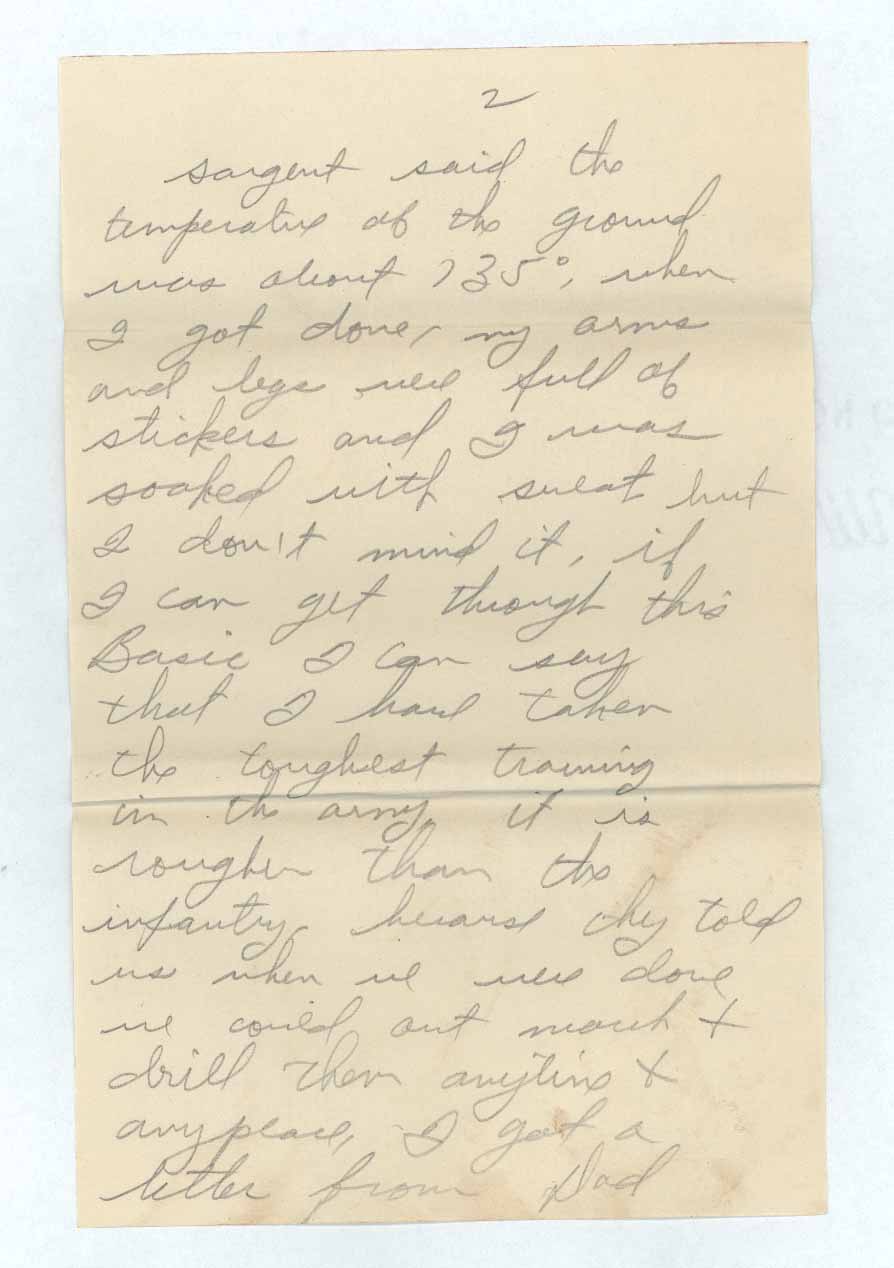 2
sargent said the
temperature of the ground
was about 135°, when
I got done, my arms
and legs were full of
stickers and I was
soaked with sweat but
I don't mind it, if
I can get through this
Basic I can say
that I have taken
the toughest training
in the army, it is
rougher than the
infantry, because they told
us when we were done
we could out march +
drill them anytime +
anyplace, I got a
letter from Dad